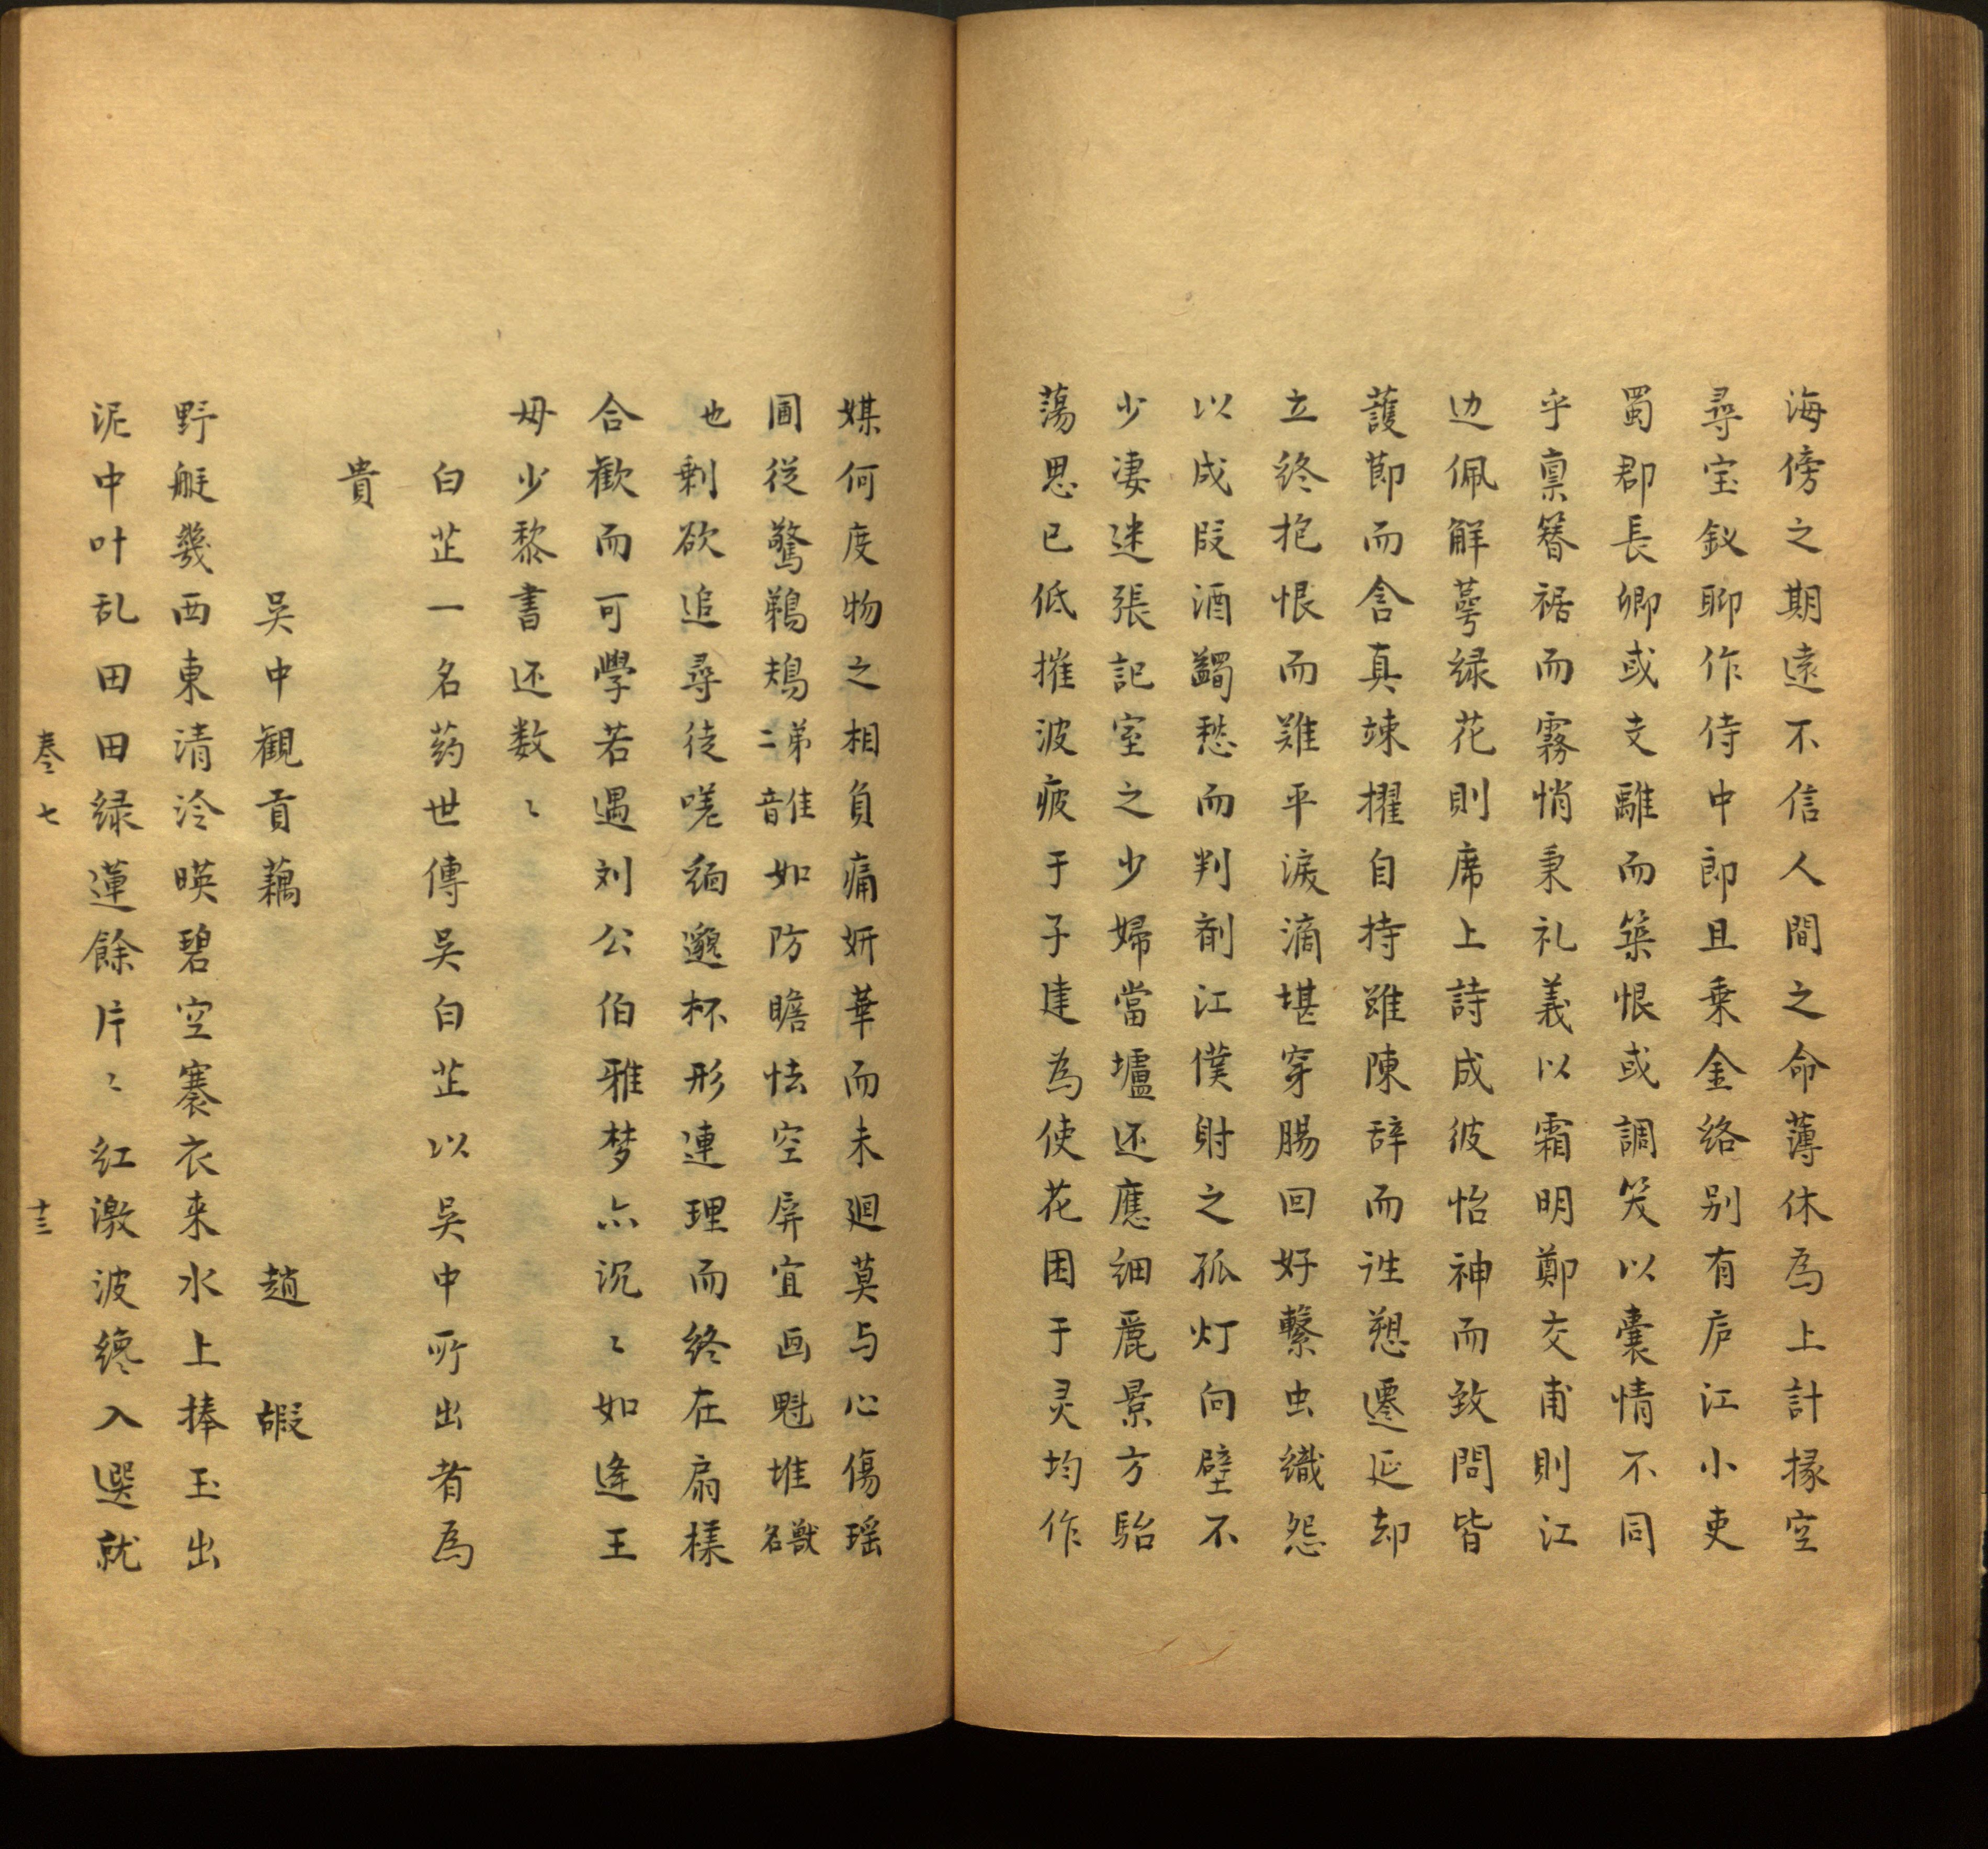 海傍之期遠不信人間之命薄休為上計掾空
尋宝釵聊作侍中郎且乗金络别有庐江小吏
蜀郡長卿或支離而築恨或調笑以囊情不同
乎禀簪裾而霧悄秉礼義以霜明鄭交甫則江
边佩觧萼绿花則席上詩成彼怡神而致問皆
護節而含真竦擢自持雖陳辞而詿愬遷延却
立终抱恨而難平淚滴堪穿腸回好繫虫織怨
以成段酒蠲愁而判劑江僕射之孤灯向壁不
少凄迷張記室之少婦當壚还應细麗景方駘
蕩思已低摧波疲于子建為使花困于灵均作
媒何度物之相負痛妍華而未廻莫与心傷瑶
圃從驚鵜鴂二弟音隹如防瞻怯空屏宜画魁堆獸名
也剩欲追尋徒嗟緬邈杯形連理而终在扇樣
合歡而可學若遇刘公伯雅梦亦沉〻如逢王
母少黎書还数〻
白芷一名药世傳吴白芷以吴中所出者為
貴
吴中觀貢藕 趙嘏
野艇幾西東清泠暎碧空褰衣来水上捧玉出
泥中叶乱田田绿蓮餘片〻红激波纔入選就
卷七 十三